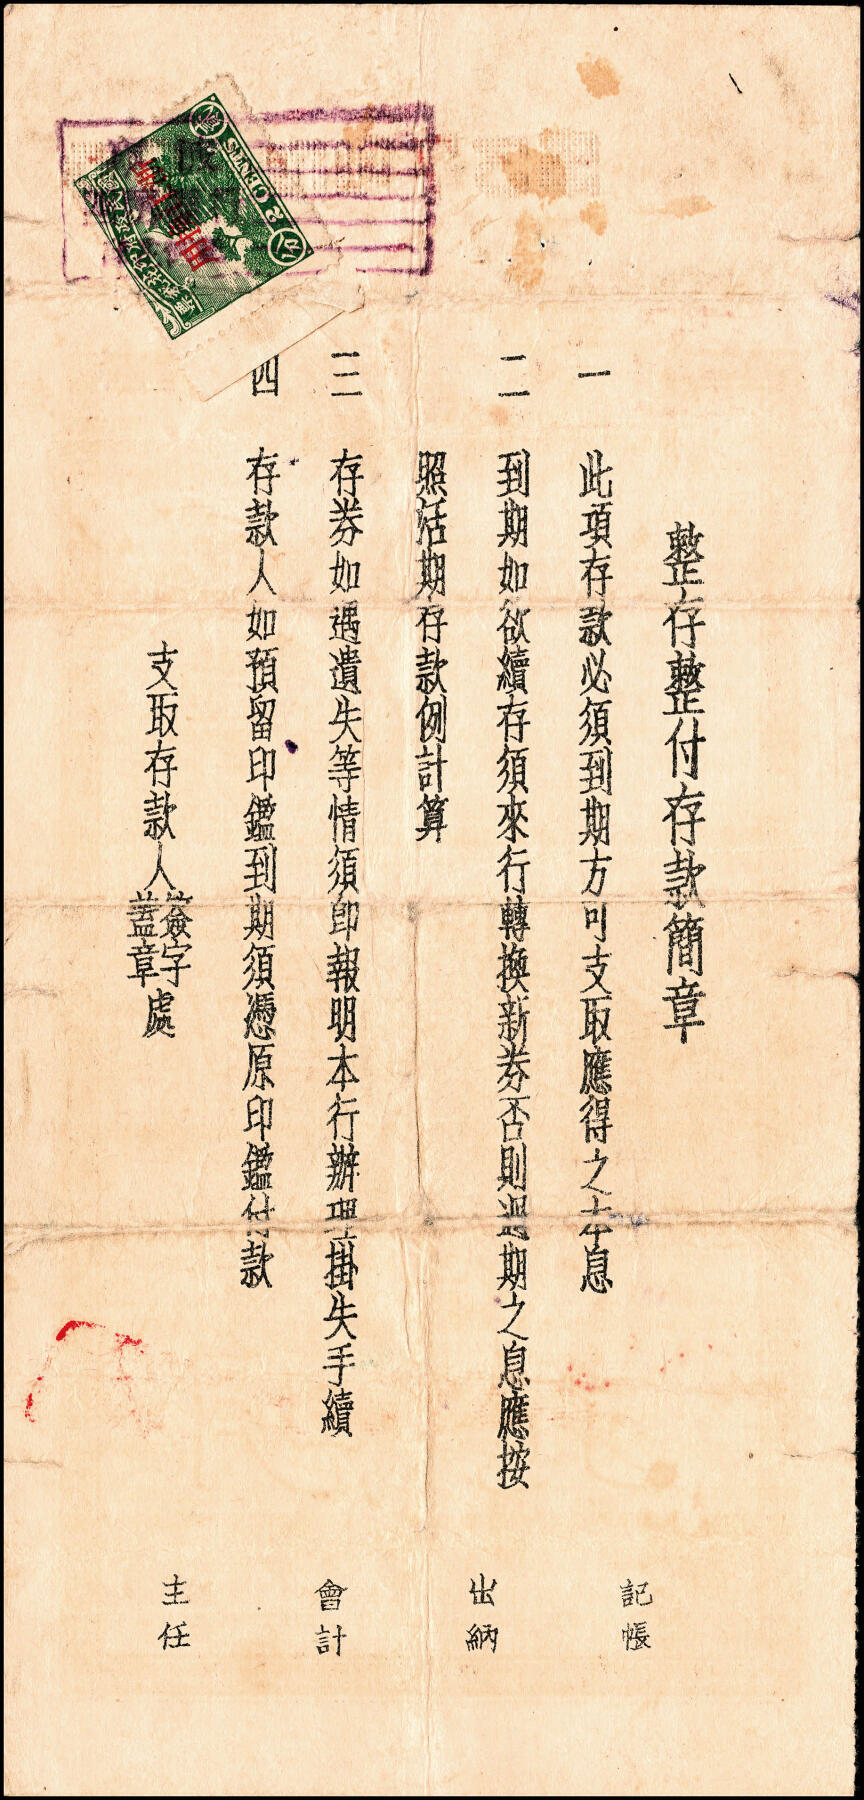 整存整付存款簡章
一 此項存款必須到期方可支取應得之本息
二 到期如欲續存須來行轉換新券否則過期之息應按
照活期存款例計算
三 存券如遇遺失等情須卽報明本行辦理掛失手續
四 存款人如預留印鑑到期須憑原印鑑付款
支取存款人簽字蓋章處
記帳
出納
會計
主任
2 CENTS
分